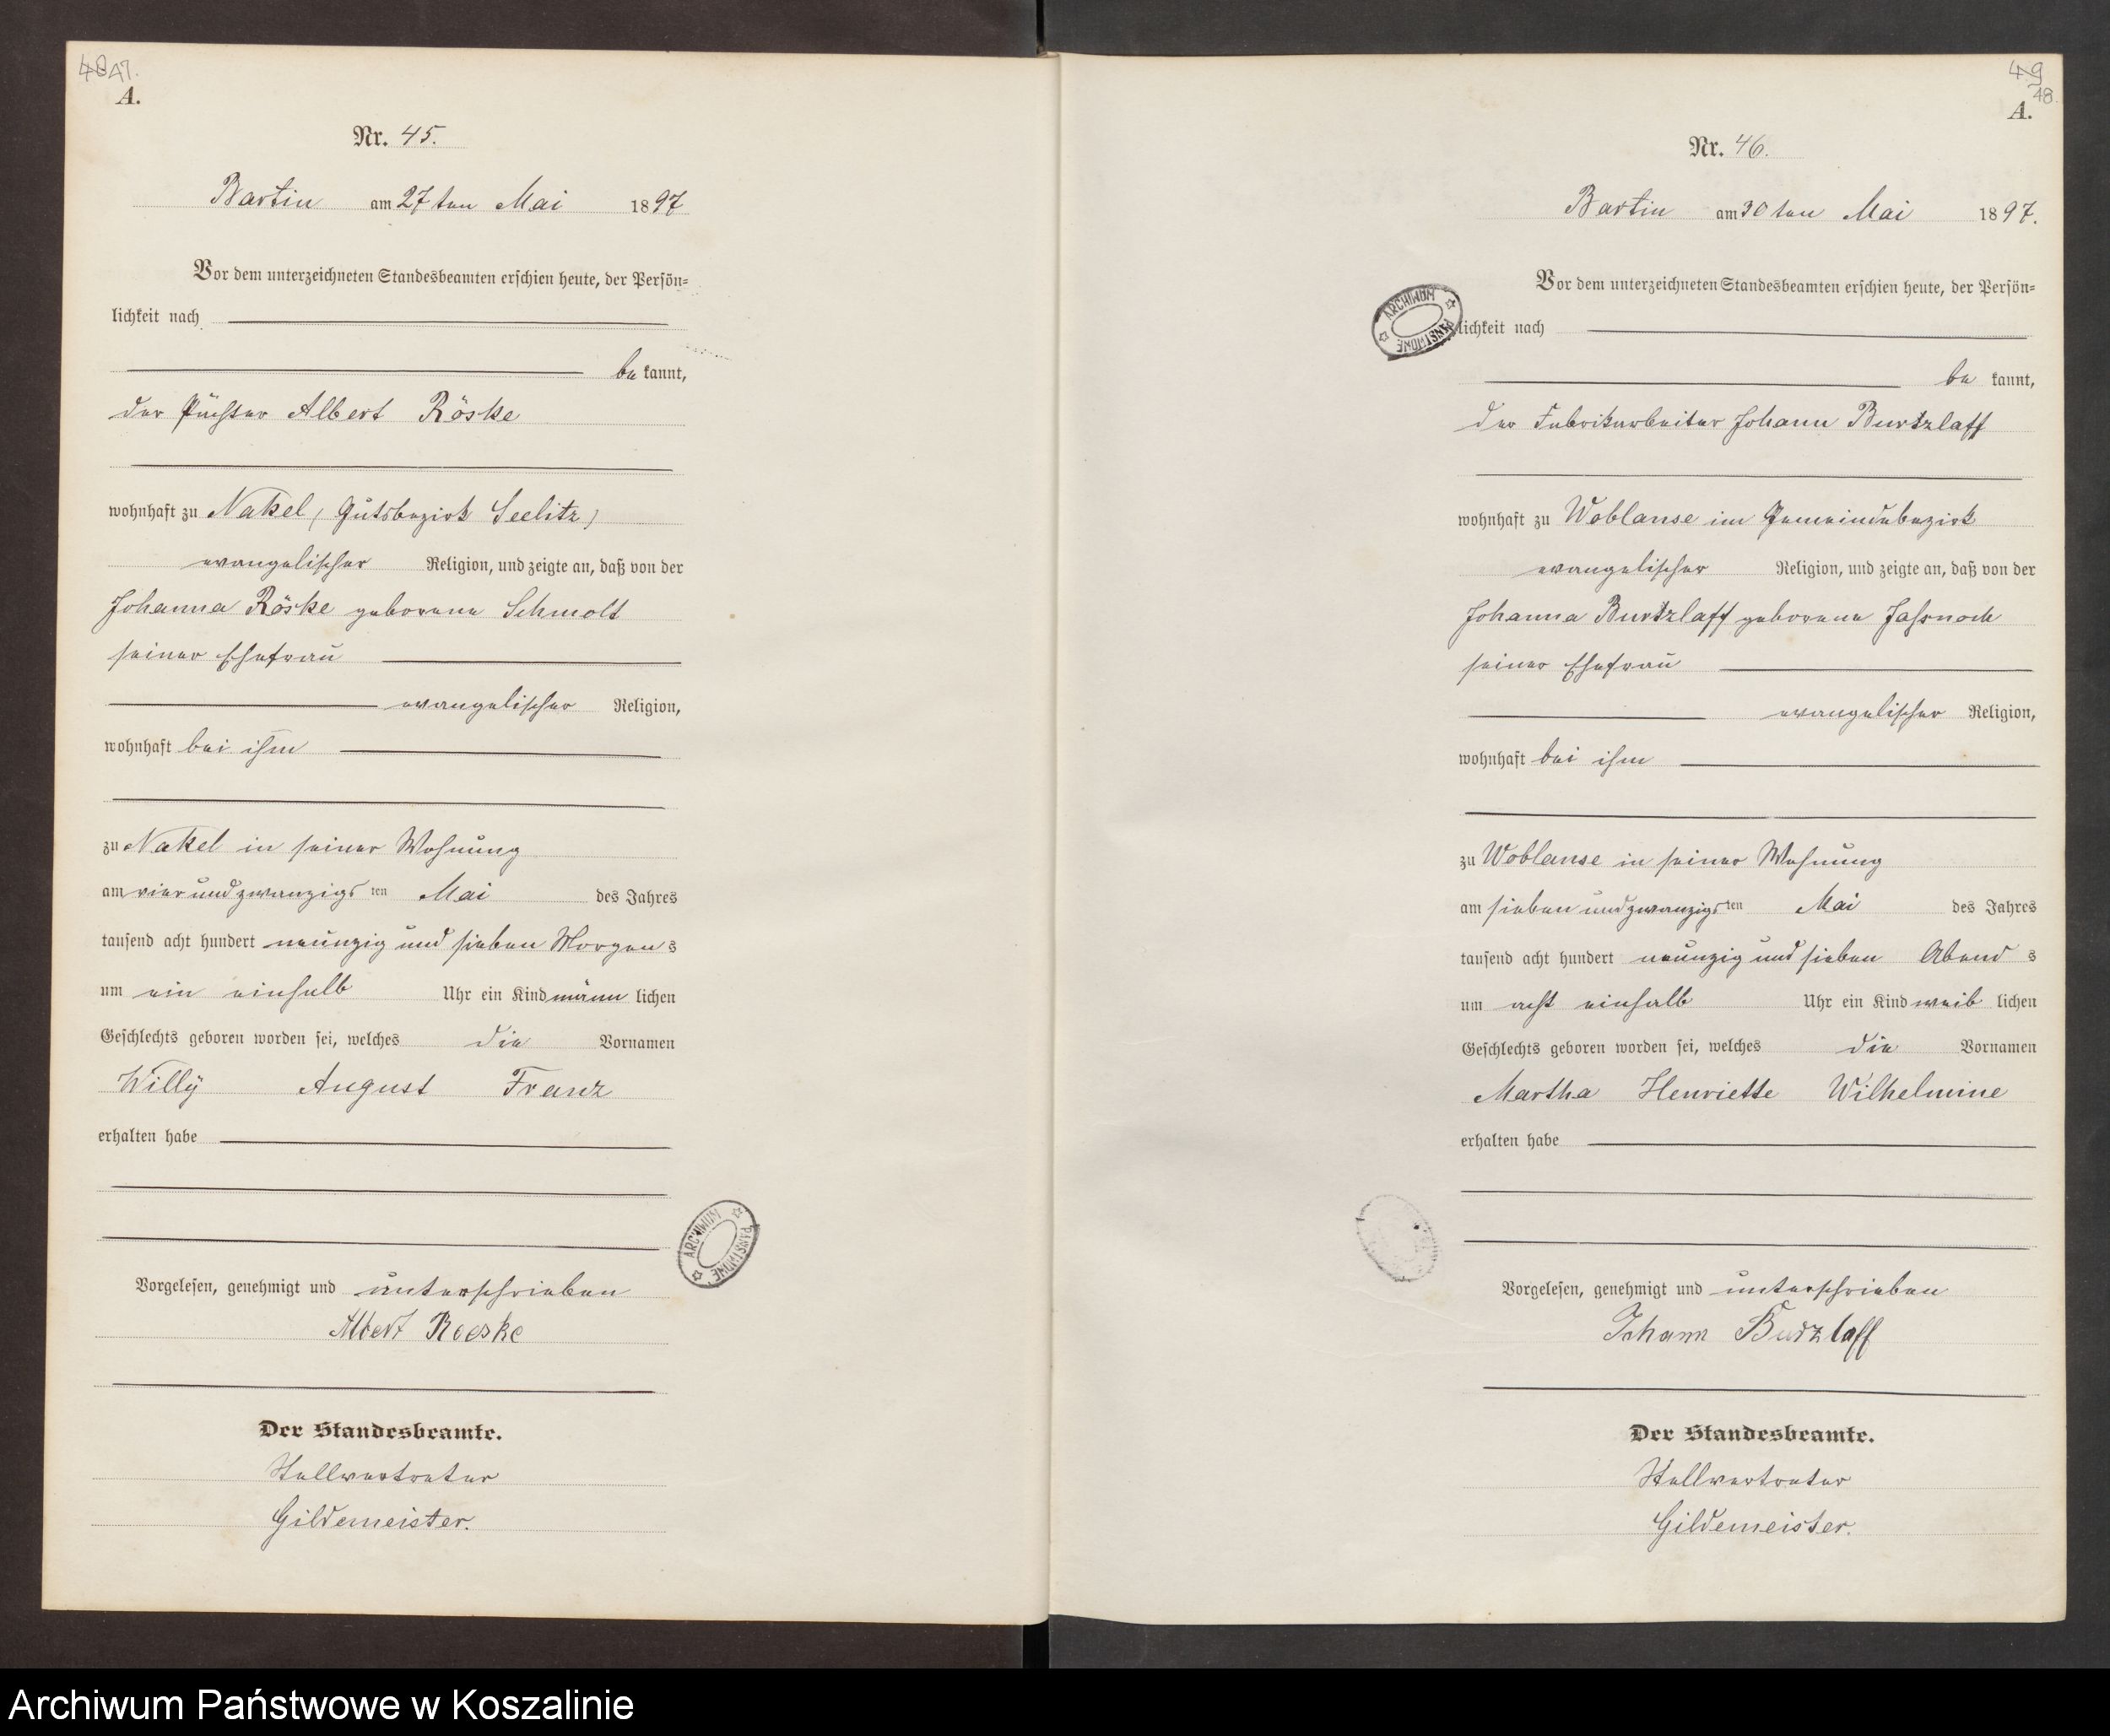 48 47.
A.
Nr. 45.
Bartin am 27ten Mai 1897
Vor dem unterzeichneten Standesbeamten erschien heute, der Persön-
lichkeit nach
be kannt,
der Pächter Albert Röske
wohnhaft zu Nakel (Gutsbezirk Seelitz)
evangelischer Religion, und zeigte an, daß von der
Johanna Röske geborene Schmolt
seiner Ehefrau
evangelischer Religion,
wohnhaft bei ihm
zu Nakel in seiner Wohnung
am vier und zwanzigsten Mai des Jahres
tausend acht hundert neunzig und sieben Morgens
um ein einhalb Uhr ein Kind männlichen
Geschlechts geboren worden sei, welches die Vornamen
Willÿ August Franz
erhalten habe
Vorgelesen, genehmigt und unterschrieben
Albert Roeske
Der Standesbeamte.
Stellvertreter
Gildemeister.
ARCHIWUM PAŃSTWOWE
49
48.
A.
Nr. 46.
Bartin am 30ten Mai 1897.
Vor dem unterzeichneten Standesbeamten erschien heute, der Persön-
lichkeit nach
be kannt,
der Fabrikarbeiter Johann Burtzlaff
wohnhaft zu Woblanse im Gemeindebezirk
evangelischer Religion, und zeigte an, daß von der
Johanna Burtzlaff geborene
seiner Ehefrau
evangelischer Religion,
wohnhaft bei ihm
zu Woblanse in seiner Wohnung
am sieben und zwanzigsten Mai des Jahres
tausend acht hundert neunzig und sieben Abends
um acht einhalb Uhr ein Kind weiblichen
Geschlechts geboren worden sei, welches die Vornamen
Martha Henriette Wilhelmine
erhalten habe
Vorgelesen, genehmigt und unterschrieben
Johann Burzlaff
Der Standesbeamte.
Stellvertreter
Gildemeister.
ARCHIWUM PAŃSTWOWE
Archiwum Państwowe w Koszalinie